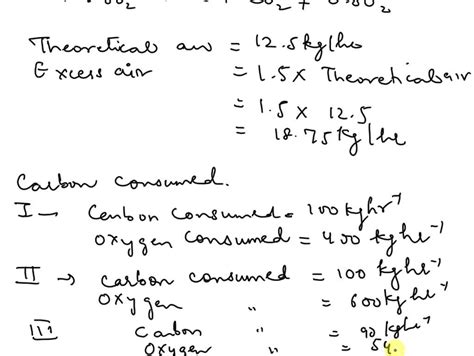 Theoretical air = 12.5kg/hr
Excess air = 1.5 x Theoretical air
= 1.5 x 12.5
= 18.75kg/hr
Carbon consumed.
I → Carbon consumed = 100kghr⁻¹
Oxygen consumed = 400kghr⁻¹
II → Carbon consumed = 100 kg hr⁻¹
Oxygen " = 600kg hr⁻¹
III Carbon " = 90 kghr⁻¹
Oxygen " = 54